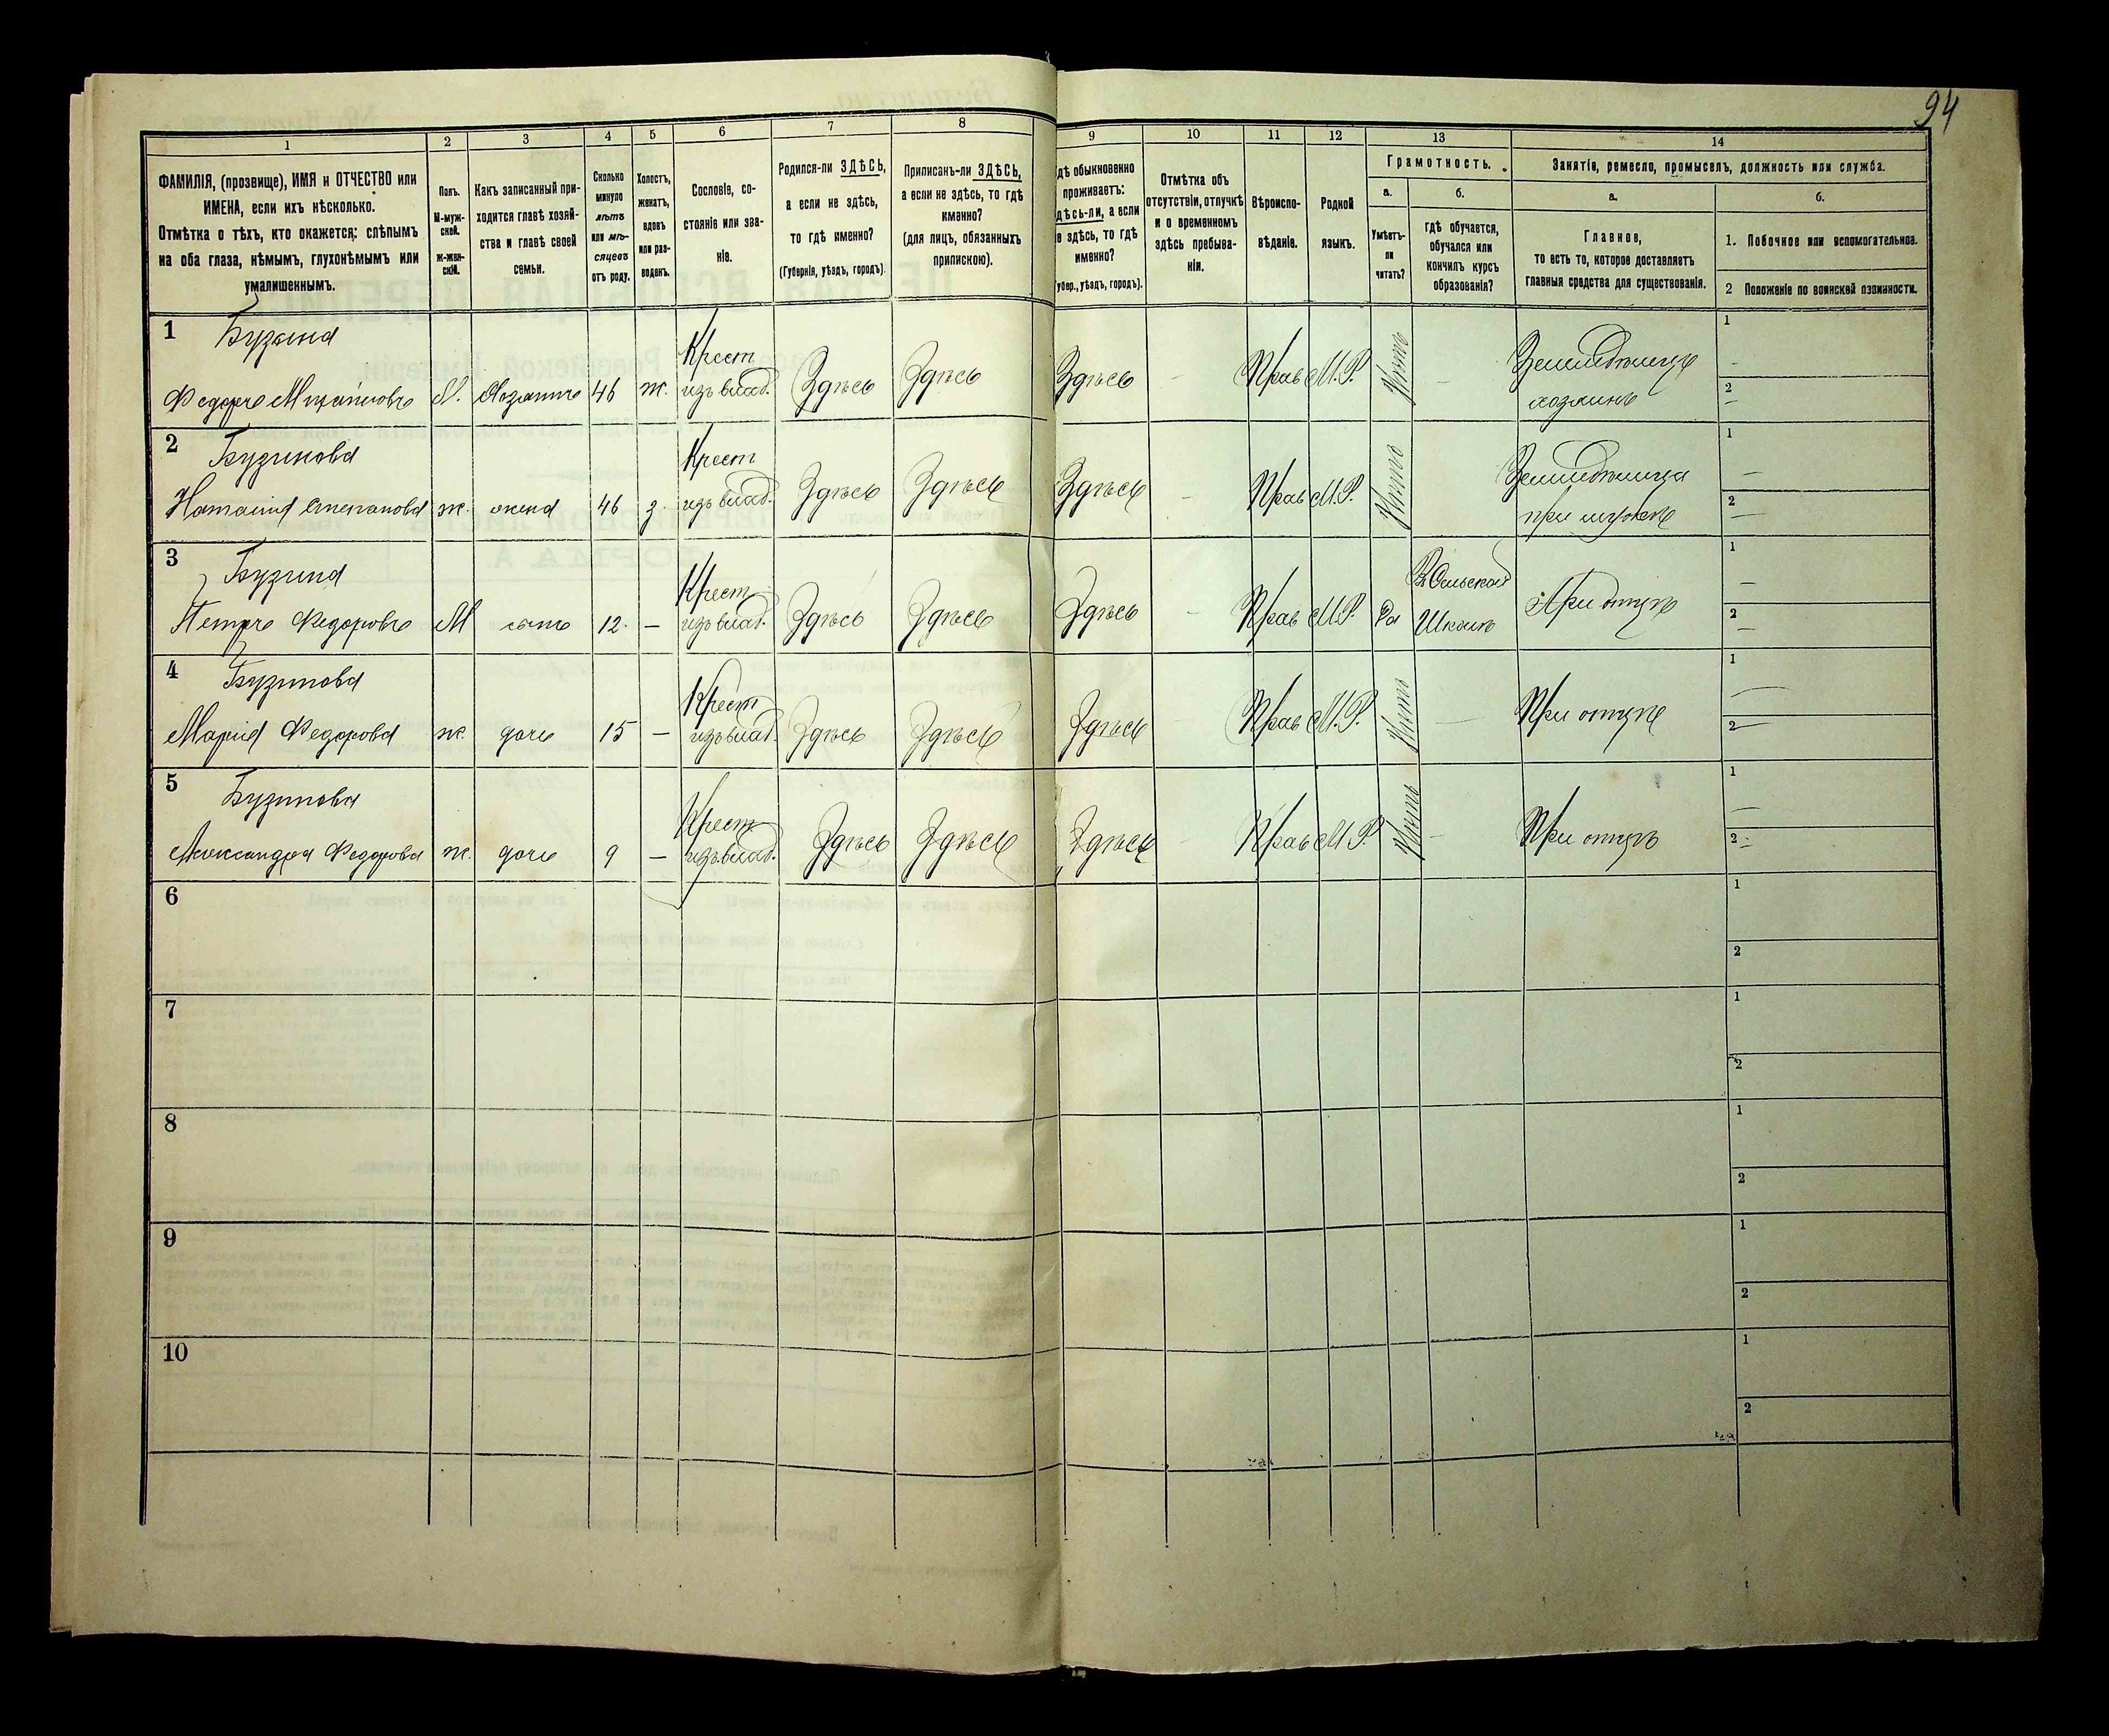 94
1
2
3
4
5
6
7
8
9
10
11
12
13
14
ФАМИЛІЯ, (прозвище), ИМЯ и ОТЧЕСТВО или
ИМЕНА, если ихъ нѣсколько.
Отмѣтка о тѣхъ, кто окажется: слѣпымъ
на оба глаза, нѣмымъ, глухонѣмымъ или
умалишеннымъ.
Полъ.
М-муж-
ской.
Ж-жен-
скій.
Какъ записанный при-
ходится главѣ хозяй-
ства и главѣ своей
семьи.
Сколько
минуло
лѣтъ
или мѣ-
сяцевъ
отъ роду.
Холостъ,
женатъ,
вдовъ
или раз-
веденъ.
Сословіе, со-
стояніе или зва-
ніе.
Родился-ли ЗДѢСЬ,
а если не здѣсь,
то гдѣ именно?
(Губернія, уѣздъ, городъ).
Приписанъ-ли ЗДѢСЬ,
а если не здѣсь, то гдѣ
именно?
(для лицъ, обязанныхъ
припискою).
дѣ обыкновенно
проживаетъ:
дѣсь-ли, а если
е здѣсь, то гдѣ
именно?
убер., уѣздъ, городъ).
Отмѣтка объ
отсутствіи, отлучкѣ
и о временномъ
здѣсь пребыва-
ніи.
Вѣроиспо-
вѣданіе.
Родной
языкъ.
Грамотность.
а.
Умѣетъ-
ли
читать?
б.
гдѣ обучается,
обучался или
кончилъ курсъ
образованія?
Занятіе, ремесло, промыселъ, должность или служба.
а.
Главное,
то есть то, которое доставляетъ
главныя средства для существованія.
б.
1. Побочное или вспомогательное.
2 Положеніе по воинской повинности.
1 Бузина
Федоръ Михайловъ М. Хозяинъ 46 ж. Крест
изъ влад. Здѣсь Здѣсь Здѣсь - Прав М.Р. Нѣтъ - Земледѣлецъ
хозяинъ
1 -
2 -
2 Бузинова
Наталия Степанова ж. жена 46 з. Крест
изъ влад. Здѣсь Здѣсь Здѣсь - Прав М.Р. Нѣтъ Земледѣлица
при мужѣ
1 -
2 -
3 Бузина
Петръ Федоровъ М сынъ 12. - Крест
изъ влад. Здѣсь Здѣсь Здѣсь - Прав М.Р. Да Въ Сельской
Школѣ При отцѣ
1 -
2 -
4 Бузинова
Мария Федорова ж. дочь 15 - Крест
изъ влад. Здѣсь Здѣсь Здѣсь - Прав М.Р. Нѣтъ - При отцѣ
1 -
2 -
5 Бузинова
Александра Федорова ж. дочь 9 - Крест
изъ влад. Здѣсь Здѣсь Здѣсь Прав М.Р. Нѣтъ - При отцѣ
1 -
2 -
6
1
2
7
1
2
8
1
2
9
1
2
10
1
2